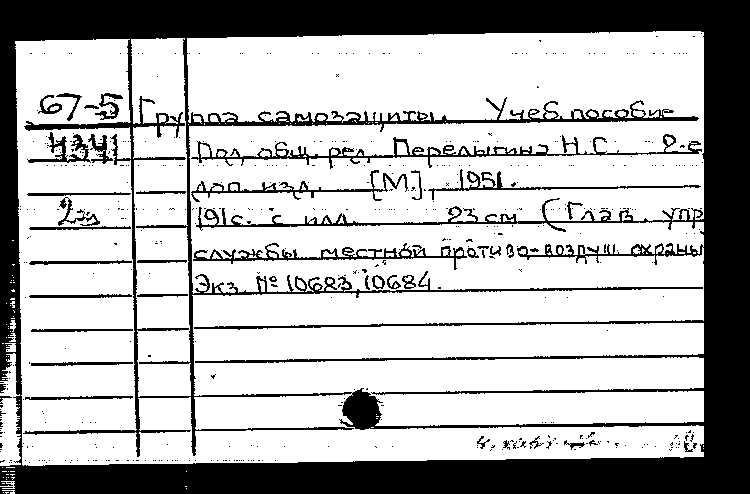 67-5 Группа самозащиты. Учеб. пособие
4341 Под общ. ред. Перелыгина Н.С. 2-е
доп. изд. [М.], 1951.
2 эк 191 с. с илл. 23 см (Глав. упр
службы местной противо-воздуш. охраны
Экз. № 10683, 10684.